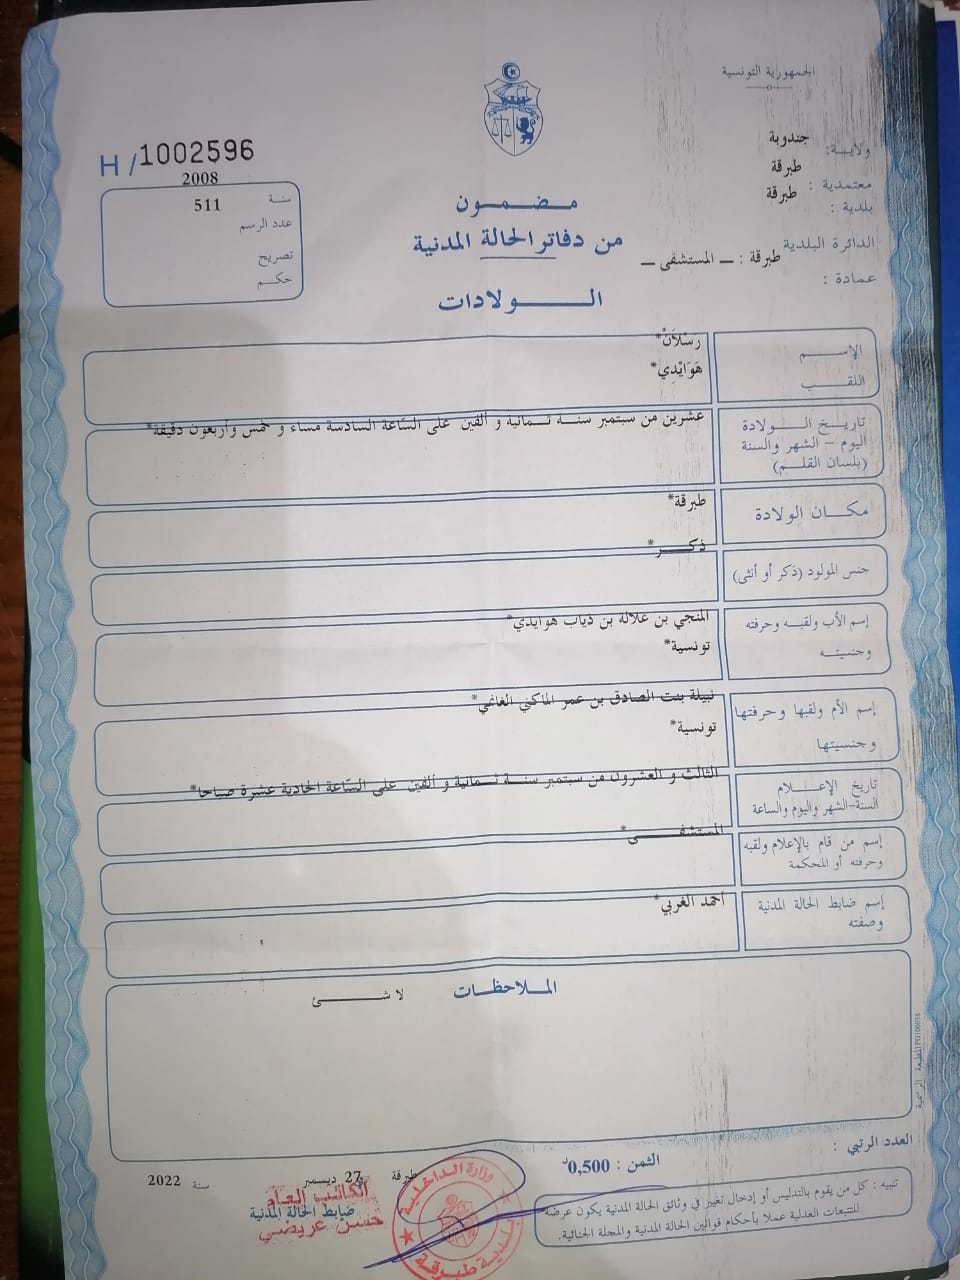 الجمهورية التونسية
ولاية: جندوبة
معتمدية : طبرقة
بلدية : طبرقة
الدائرة البلدية
عمادة : طبرقة : ــ المستشفى ــ
H / 1002596
سنة 2008
عدد الرسم 511
تصريح
حكم
مضمون
من دفاتر الحالة المدنية
الولادات
الإسم رَسْلَانْ*
اللقب هَوَايْدِي*
تاريخ الولادة
اليوم - الشهر والسنة
(بلسان القلم)
عشرين من سبتمبر سنة ثمانية و ألفين على الساعة السادسة مساء و خمس وأربعون دقيقة*
مكان الولادة طبرقة*
جنس المولود (ذكر أو أنثى) ذكر*
إسم الأب ولقبه وحرفته
وجنسيته
المنجي بن علالة بن ذياب هوايدي*
تونسية*
إسم الأم ولقبها وحرفتها
وجنسيتها
نبيلة بنت الصادق بن عمر الماكني الغانمي*
تونسية*
تاريخ الإعلام
السنة-الشهر واليوم والساعة
الثالث و العشرون من سبتمبر سنة ثمانية و ألفين على الساعة الحادية عشرة صباحا*
إسم من قام بالإعلام ولقبه
وحرفته أو المحكمة
المستشفى*
إسم ضابط الحالة المدنية
وصفته
أحمد الغربي*
الملاحظات
لا شئ
العدد الرتبي :
الثمن : 0,500د
تنبيه : كل من يقوم بالتدليس أو إدخال تغيير في وثائق الحالة المدنية يكون عرضة
للتتبعات العدلية عملا بأحكام قوانين الحالة المدنية والمجلة الجنائية.
طبرقة 27 ديسمبر سنة 2022
الكاتب العام
ضابط الحالة المدنية
حسن عريضي
وزارة الداخلية
بلدية طبرقة